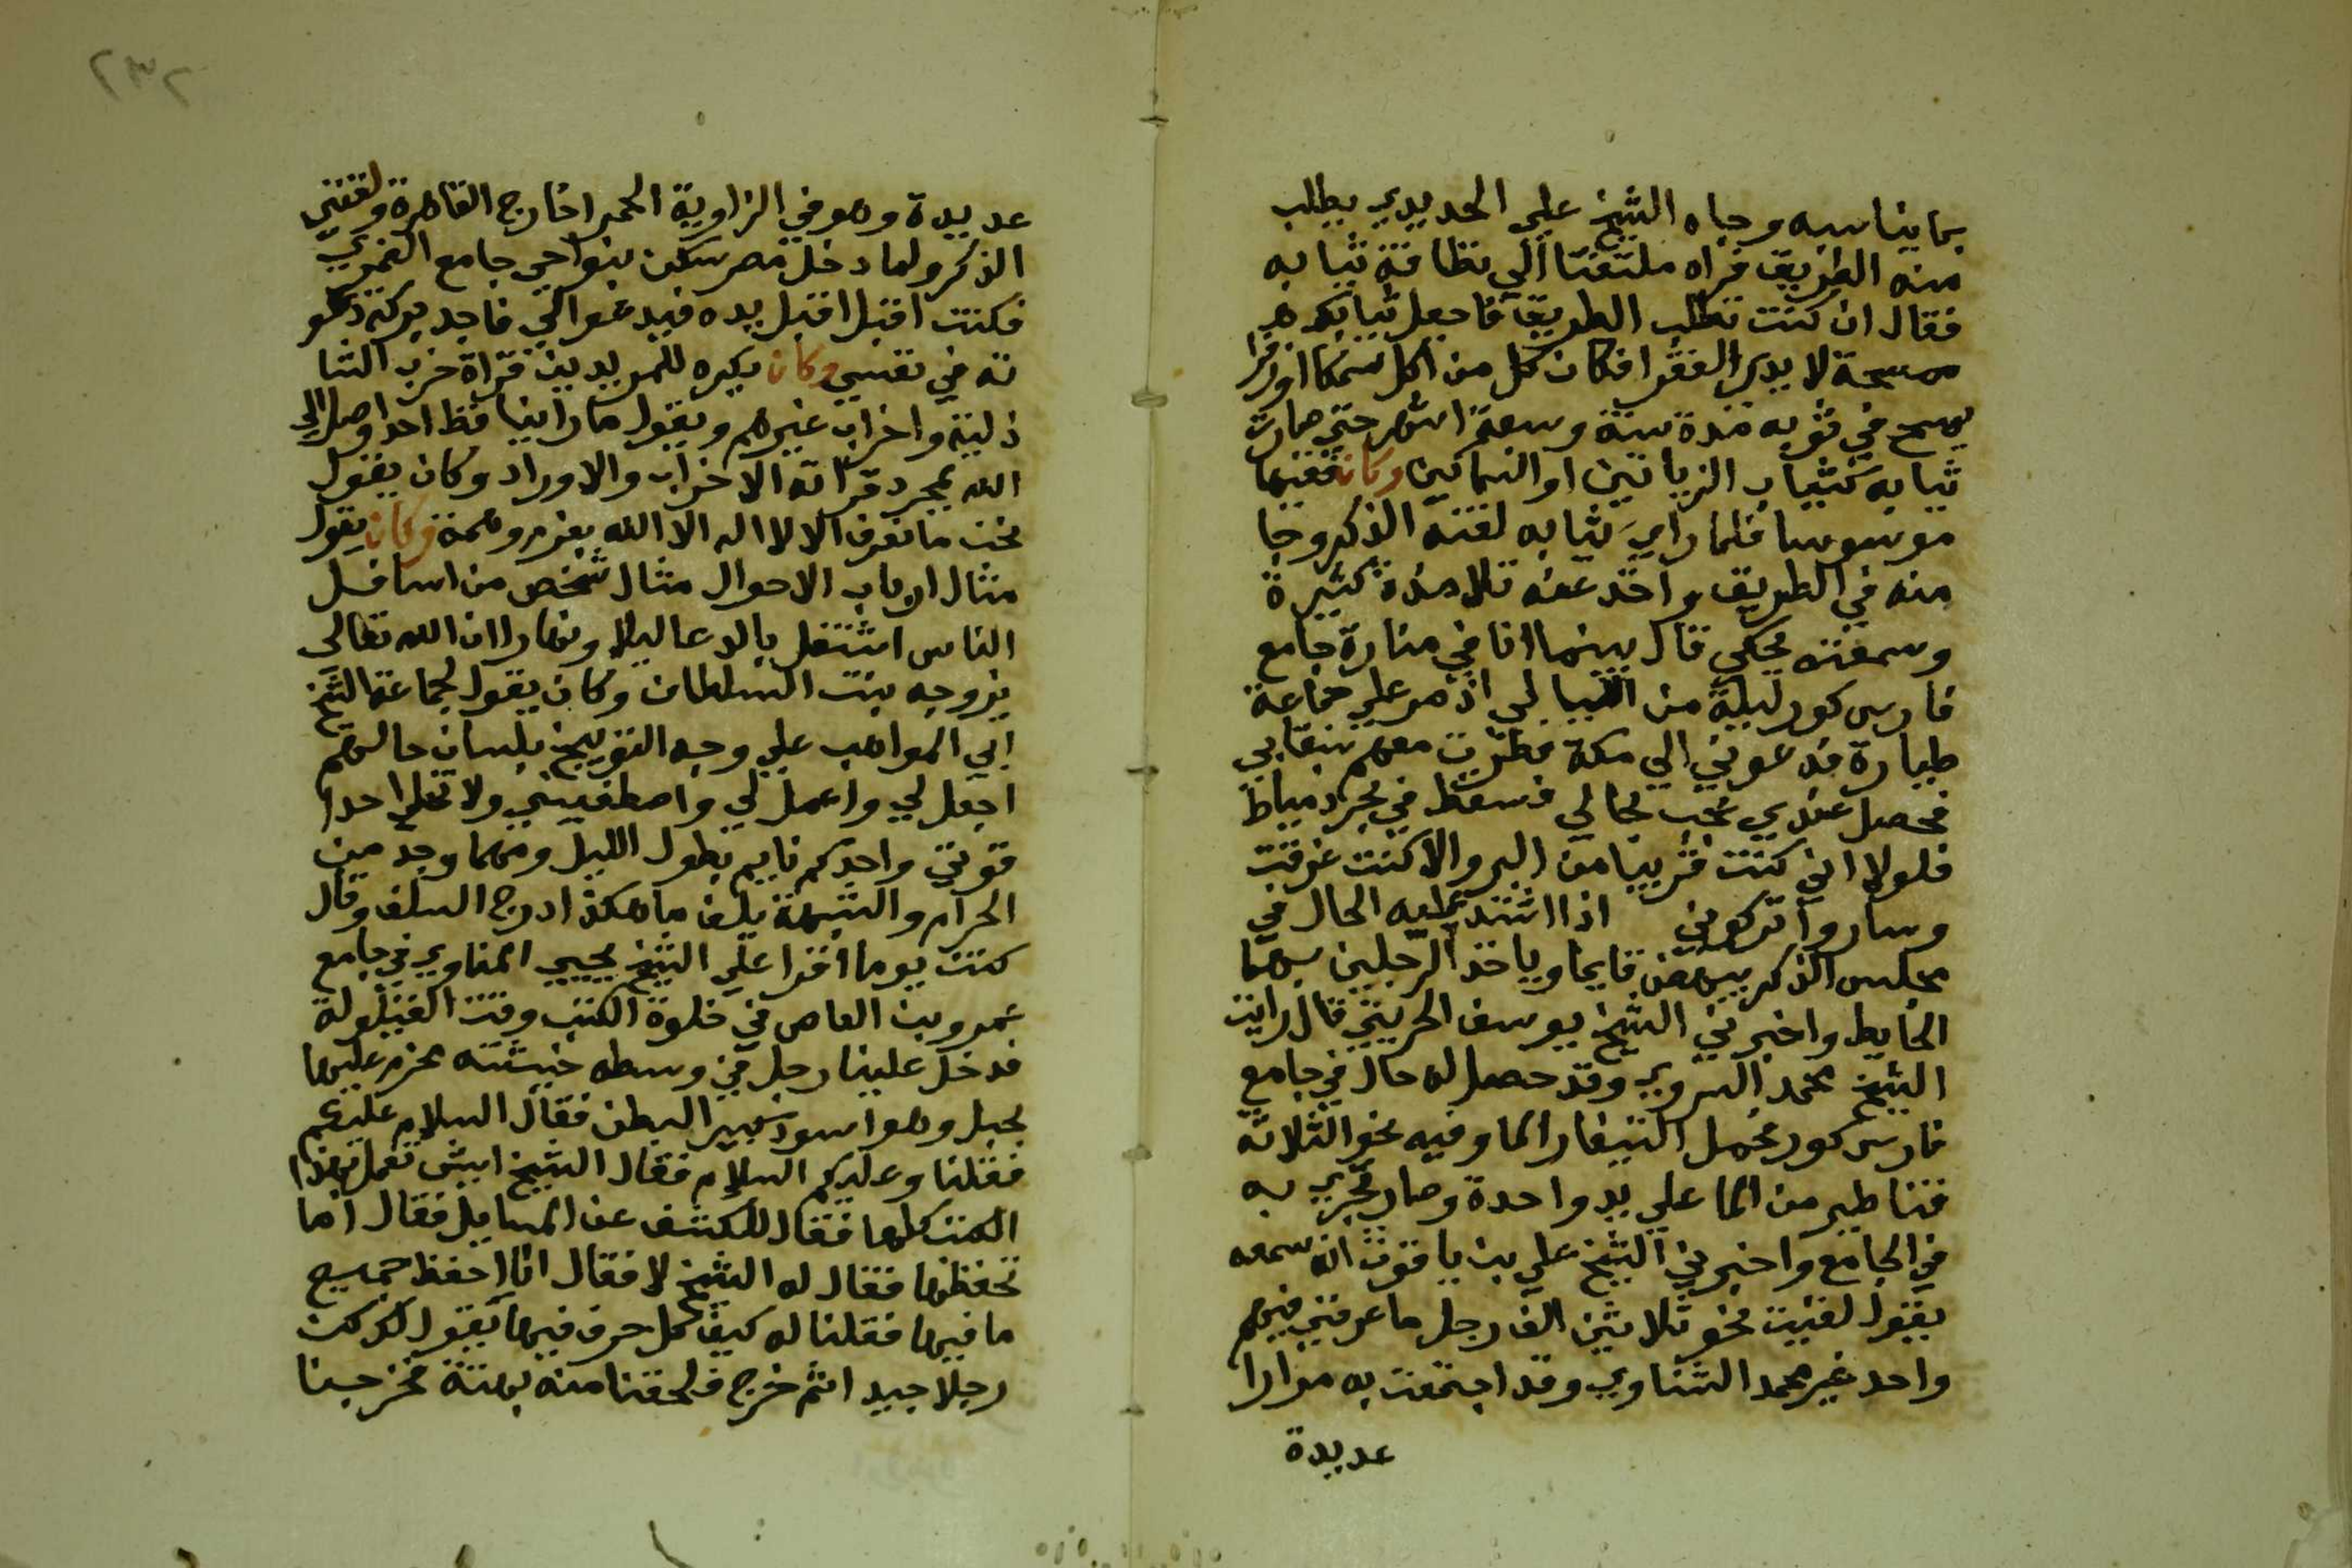 بما يناسبه وجاه الشيخ علي الحديدي يطلب
منه الطريق فراه ملتفتا الي نظافة ثيابه
فقال ان كنت تطلب الطريق فاجعل ثيابك هذ
ممسحة لايدي الفقرا فكان كل من اكل سمكا او زفرا
يمسح في ثوبه مدة سنة وسبعة اشهر حتي صارت
ثيابه كثياب الزياتين او السماكين وكان فقيها
موسوسا فلما راي ثيابه لقنه الذكر وجا
منه في الطريق واخذ عنه تلامذة كثيرة
وسمعته يحكي قال بينما انا في منارة جامع
فارس كور ليلة من الليالي اذ مر علي جماعة
طيارة فدعوني الي مكة فطرت معهم
فحصل عندي عجب بحالي فسقطت في بحر دمياط
فلولا اني كنت قريبا من البر والا كنت غرقت
وساروا وتركوني اذا اشتد عليه الحال في
مجلس الذكر ينهض قايما وياخذ الرجلين
الحايط واخبرني الشيخ يوسف الحريثي قال رايت
الشيخ محمد السروي وقد حصل له حال في جامع
فارس كور فحمل الما وفيه نحو الثلاثة
قناطير من الما علي يد واحدة وصار يجري به
في الجامع واخبرني الشيخ علي بن ياقوت انه سمعه
يقول لقيت نحو ثلاثين الف رجل ما عرفني فيهم
واحد غير محمد الشناوي وقد اجتمعت به مرارا
عديدة
٢٣٢
عديدة وهو في الزاوية الحمرا خارج القاهرة ولقنني
الذكر ولما دخل مصر سكن بنواحي جامع الغمري
فكنت اقبل اقبل يده فيدعوالي فاجد بركة دعو
ته في نفسي وكان يكره للمريدين قراة حزب الشا
ذلية واحزاب غيرهم ويقول ما راينا قط احد وصل الي
الله بمجرد قراته الاحزاب والاوراد وكان يقول
نحن ما نعرف الا لا اله الا الله بعزم وهمة وكان يقول
مثال ارباب الاحوال مثال شخص من اسافل
الناس اشتغل بالدعا ليلا ونهارا ان الله تعالي
يزوجه بنت السلطان وكان يقول لجماعة الشيخ
ابي المواهب علي وجه التوبيخ بلسان حالهم
اجعل لي واعمل لي واصطفيني ولا تخلي احدا
فوقي واحدكم نايم بطول الليل ومهما وجد من
الحرام والشبهة يلف ما هكذا درج السلف وقال
كنت يوما اقرا علي الشيخ يحيي المناوي في جامع
عمرو بن العاص في خلوة الكتب وقت القيلولة
فدخل علينا رجل في وسطه خيشته محزم عليها
بحبل وهو اسود كبير البطن فقال السلام عليكم
فقلنا وعليكم السلام فقال الشيخ ايش تعمل بهذا
الكتب كلها فقال للكشف عن المسايل فقال اما
تحفظها فقال له الشيخ لا فقال انا احفظ جميع
ما فيها فقلنا له كيف كل حرف فيها يقول لك كن
رجلا جيد اثم خرج فلحقنا منه بهتة فخرجنا